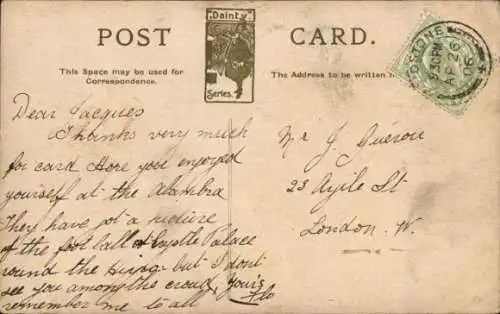 POST CARD.
Dainty
Series
This Space may be used for
Correspondence.
The Address to be written
STONE
3 30 PM
AP 26
06
Dear Jacques
Thanks very much
for card Hope you enjoyed
yourself at the Alambra
They have got a picture
of the foot ball at Crystle Palace
round the but I dont
see you among the crowd, Yours
remember me to all Flo
Mr J. Guérou
23 Ayile St
London. W.